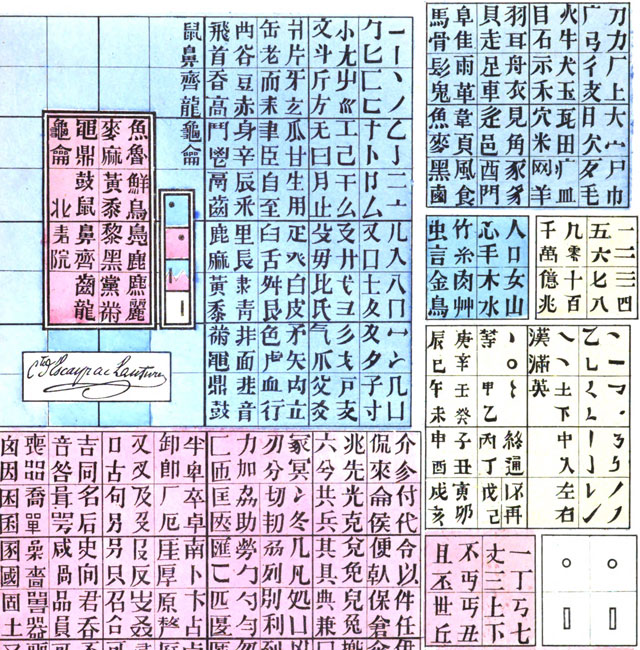 一丨丶丿乙亅二亠儿入八冂冖冫几凵
勹匕匚匸十卜卩厶又囗土夂夊夕子寸
小尢屮巛工己干幺廴廾弋彐彡戈戶支
文斗斤方无曰月止殳毋比氏气爪父爻
爿片牙玄瓜甘生用疋癶白皮矛矢禸立
缶老而耒聿臣自至臼舌舛艮色虍血行
襾谷豆赤身辛辰釆里長隶青非面韭音
飛首香高鬥鬯鬲齒鹿麻黃黍黹黽鼎鼓
鼠鼻齊龍龜龠
魚魯鮮鳥鳧鹿麃麗
麥麻黃黍黎黑黨黹
黽鼎鼓鼠鼻齊齒龍
龜龠
北 院
Cte d'Escayrac de Lauture
刀力厂土大宀尸巾
广弓彳攴日欠歹毛
火牛犬玉瓦田疒皿
目石示禾穴米网羊
羽耳舟衣見角豕豸
貝走足車辵邑酉門
阜隹雨革韋頁風食
馬骨髟鬼魚麥黑鹵
人口女山
心手木水
竹糸肉艸
虫言金鳥
一二三四
五六七八
九零十百
千萬億兆
土下中入左右
漢滿英
等甲乙丙丁戊己
庚辛壬癸子丑寅卯
辰巳午未申酉戌亥
一丁丂七
丈三上下
不丐丏丑
且丕世丘
介參付代令以件任
侃來侖侯便倝保倉
兆先光克兌免兒兔
六兮共兵其具典兼
冢冥冫冬几凡処凵
刃分切列別利
力加劦助勞勺勿
匚匝匡匧匯匸匹匿
半卑卒卓南卜卞占
卸卽厂厄厓厚原
又叉及反叕
口古句另只召合
吉同名后史向君吞
音咸咼品員
喪㗊喬單喿嗇嘼器
囟因困囷國固土